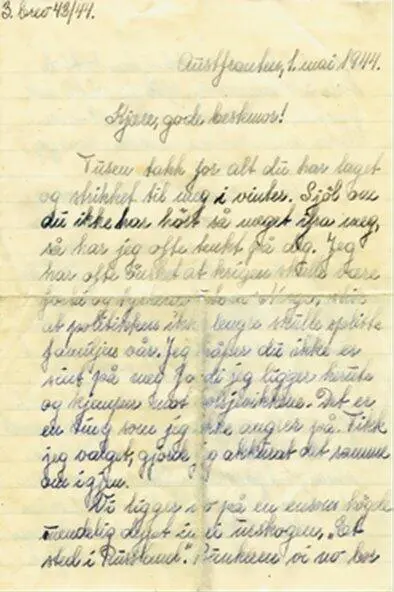 3. brev 43/44.
Austfronten, 1. mai 1944.
Kjære, gode bestemor!
Tusen takk for alt du har laget
og stikket til meg i vinter. Sjøl om
du ikke har hørt så meget ifra meg,
så har jeg ofte tenkt på deg. Jeg
har ofte ønsket at krigen skulle være
forbi og
at politikken ikke lengre skulle splitte
familjen vår. Jeg håper du ikke er
sint på meg fordi jeg ligger herute
og kjemper mot bolsjevikkene. Det er
en ting som jeg ikke angrer på. Fikk
jeg valget, gjorde jeg akkurat det samme
om igjen.
Vi ligger no på en ensom høgde
uendelig dypt inne i urskogen, "Et
sted i Russland". Bunkeren vi no bor